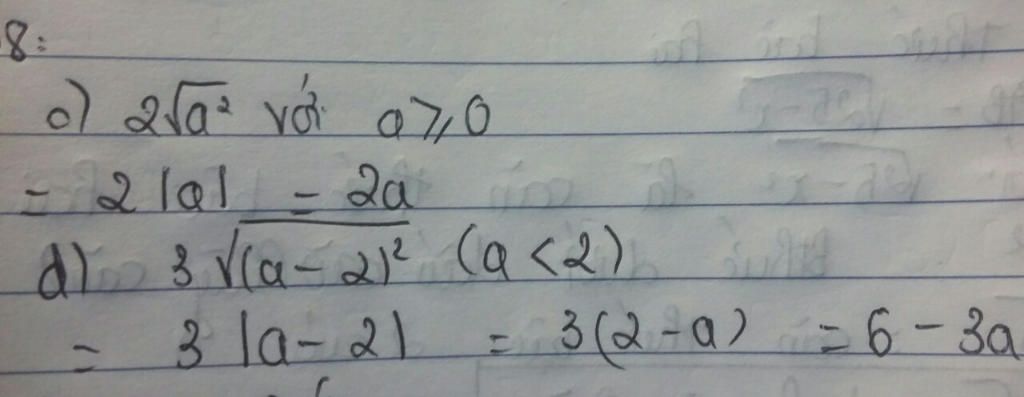 8:
c) 2√a² với a ⩾ 0
= 2|a| = 2a
d) 3√(a - 2)² (a < 2)
= 3|a - 2| = 3(2 - a) = 6 - 3a